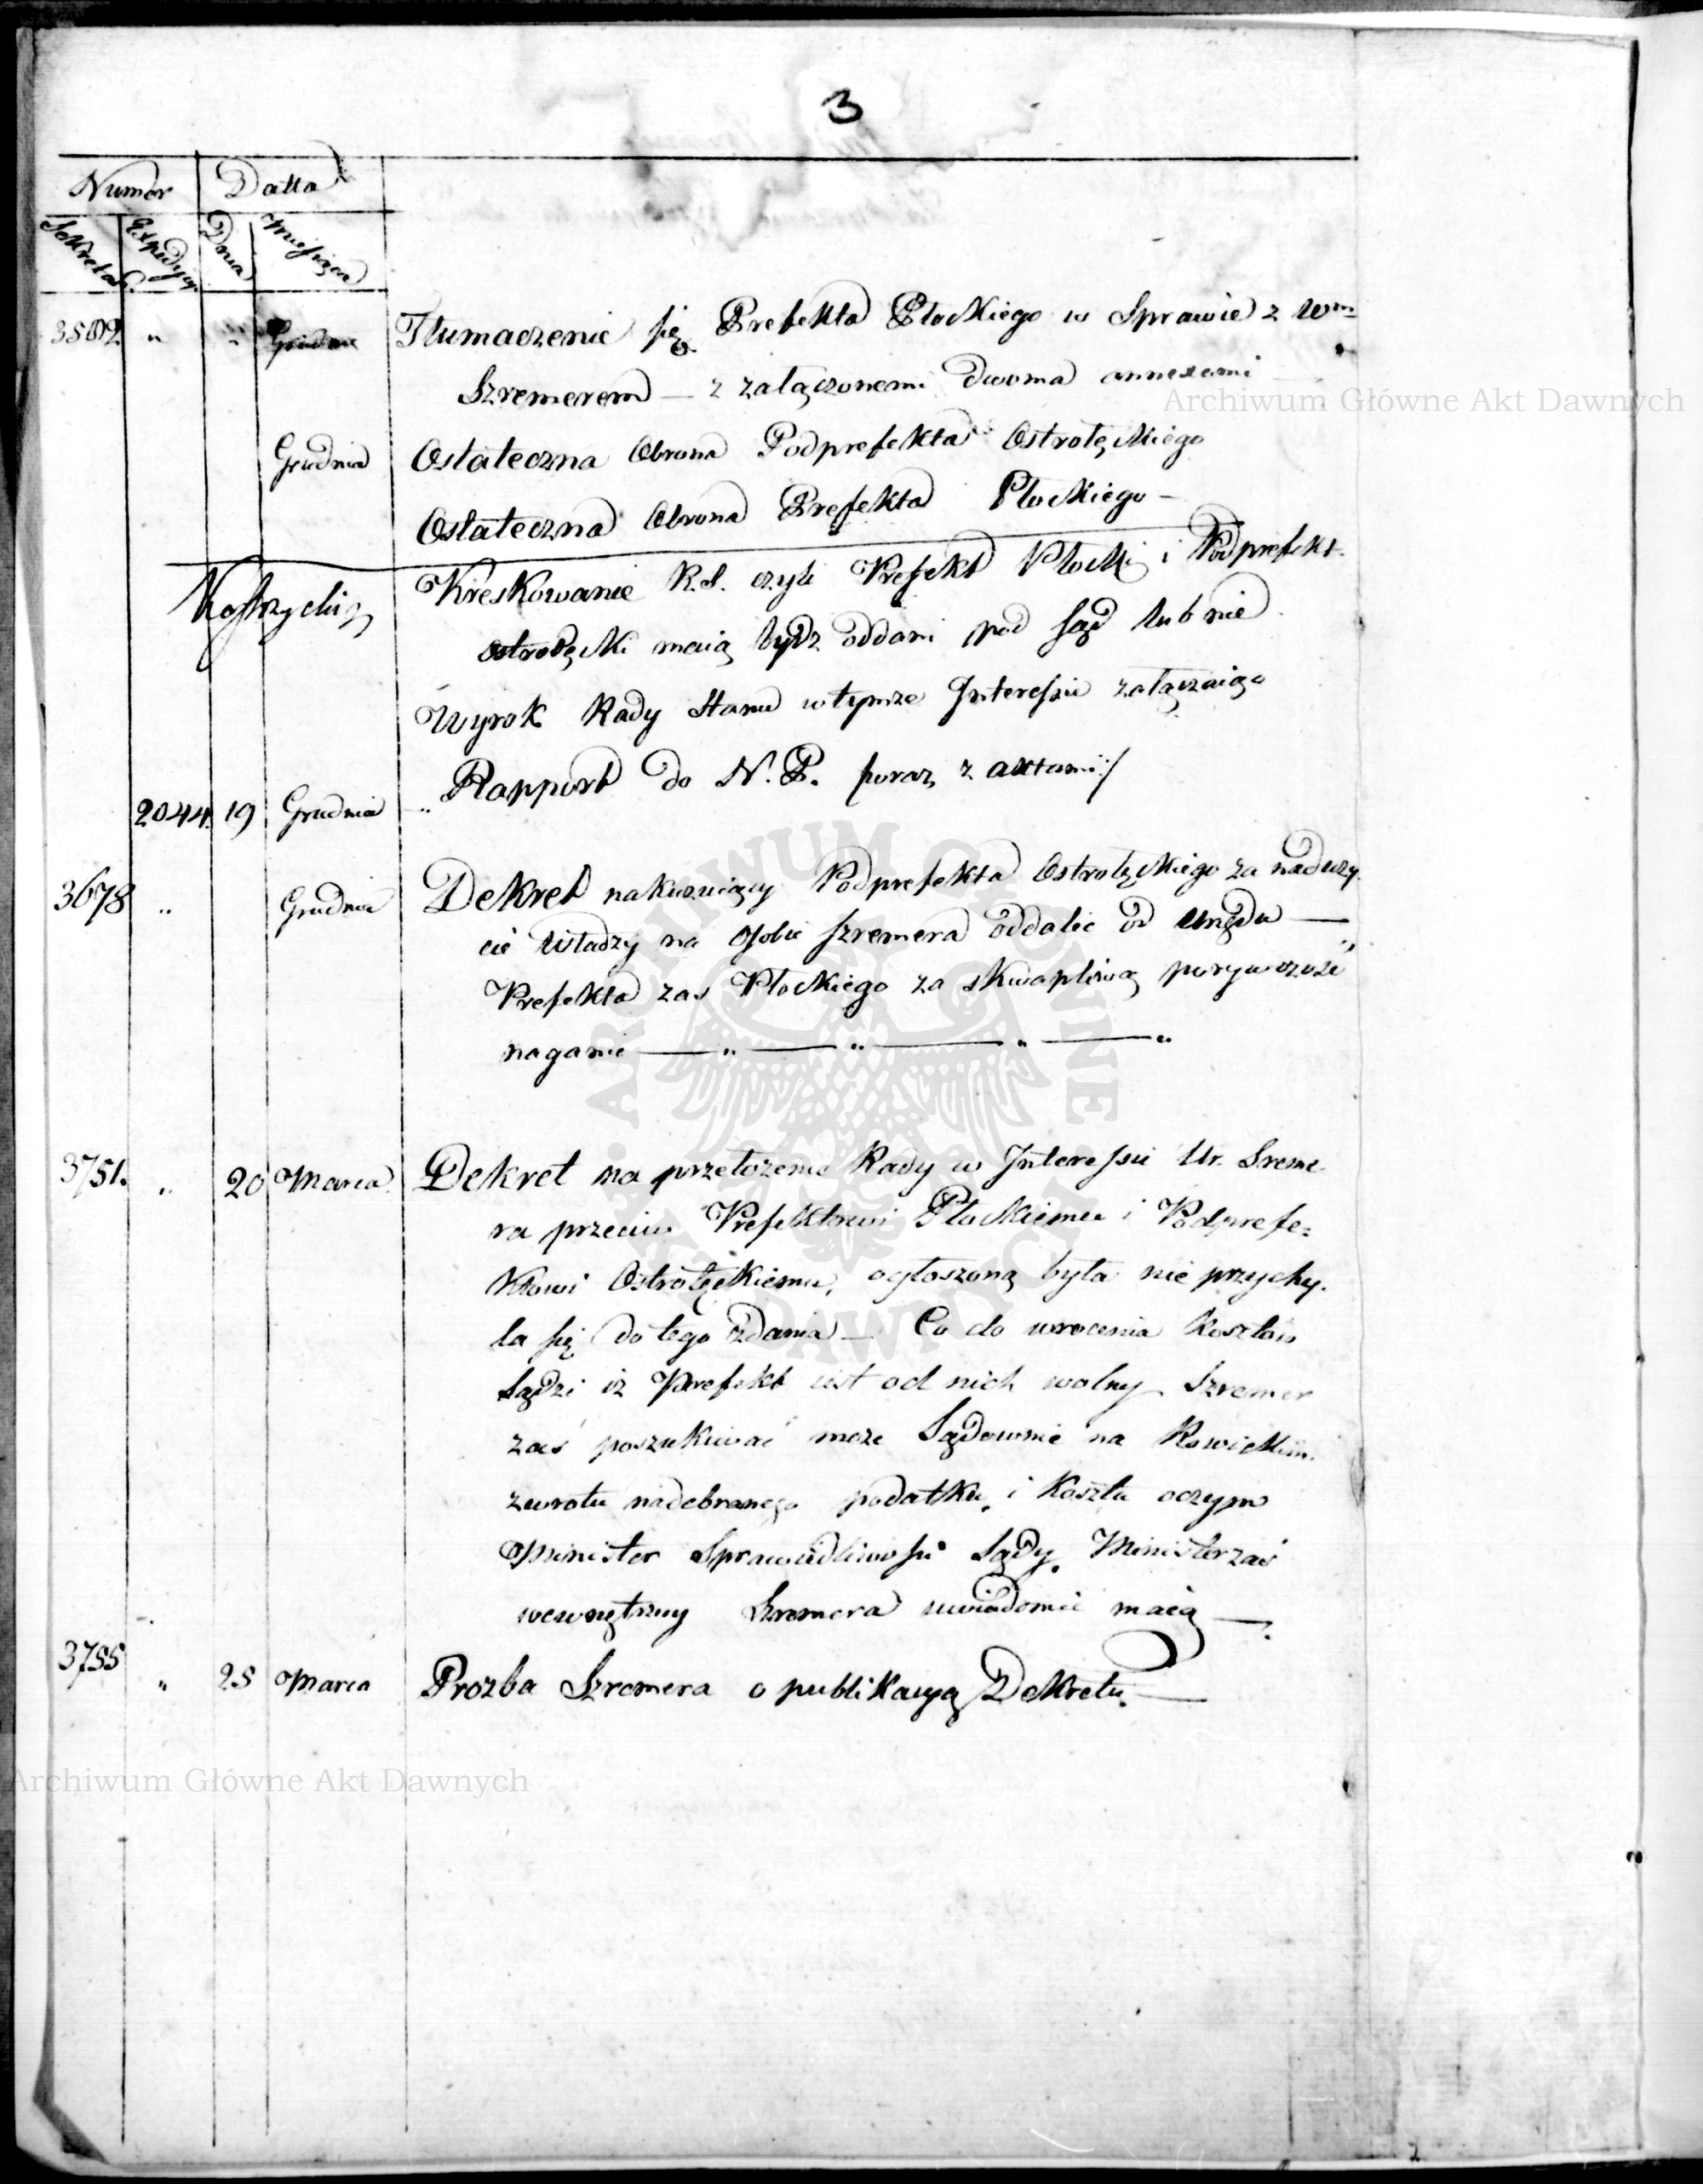 3
Numer Datta
Sekretar. Expedycyi. Dnia Miesiąca
3502 " " Grudnia Tłumaczenie się Prefekta Płockiego w Sprawie z Wm
Szremerem — z załączonemi dwoma annexami
Grudnia Ostateczna Obrona Podprefekta Ostrołęckiego
Ostateczna Obrona Prefekta Płockiego —
Kreskowanie R.S. czyli Prefekt Płocki i Podprefekt
Ostrołęcki maią bydź oddani pod Sąd lub nie
Wyrok Rady Stanu w tymże Interessie załączaiąc
Rapport do N. P. poraz z aktami :/
2044. 19 Grudnia "
3678 " Grudnia Dekret nakazuiący Podprefekta Ostrołęckiego za naduży-
cie Władzy na osobie Szremera oddalić od Urzędu —
Prefekta zas Płockiego za skwapliwą porywczość
naganie — " — " — " — "
3751. " 20 Marca Dekret na przełożenie Rady w Interessie Ur. Sreme-
ra przeciw Prefektowi Płockiemu i Podprefe=
ktowi Ostrołęckiemu, ogłoszoną była nie przychy-
la się do tego zdania — Co do wrocenia Kosztów
Sądzi iż Prefekt iest od nich wolny Szremer
zaś poszukiwać może Sądownie na Rowickim
zwrotu nadebranego podatku, i Kosztu oczym
Minister Sprawiedliwości Sądy, Minister zaś
wewnętrzny Szremera uwiadomić maią —
3755 " 25 Marca Prozba Szremera o publikacyą Dekretu. —
Archiwum Główne Akt Dawnych
Archiwum Główne Akt Dawnych
ARCHIWUM GŁÓWNE AKT DAWNYCH